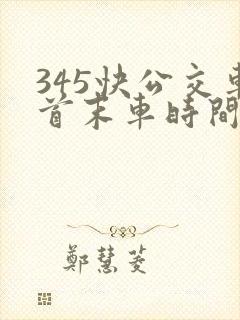 345快公交車
首末車時間
鄭慧菱